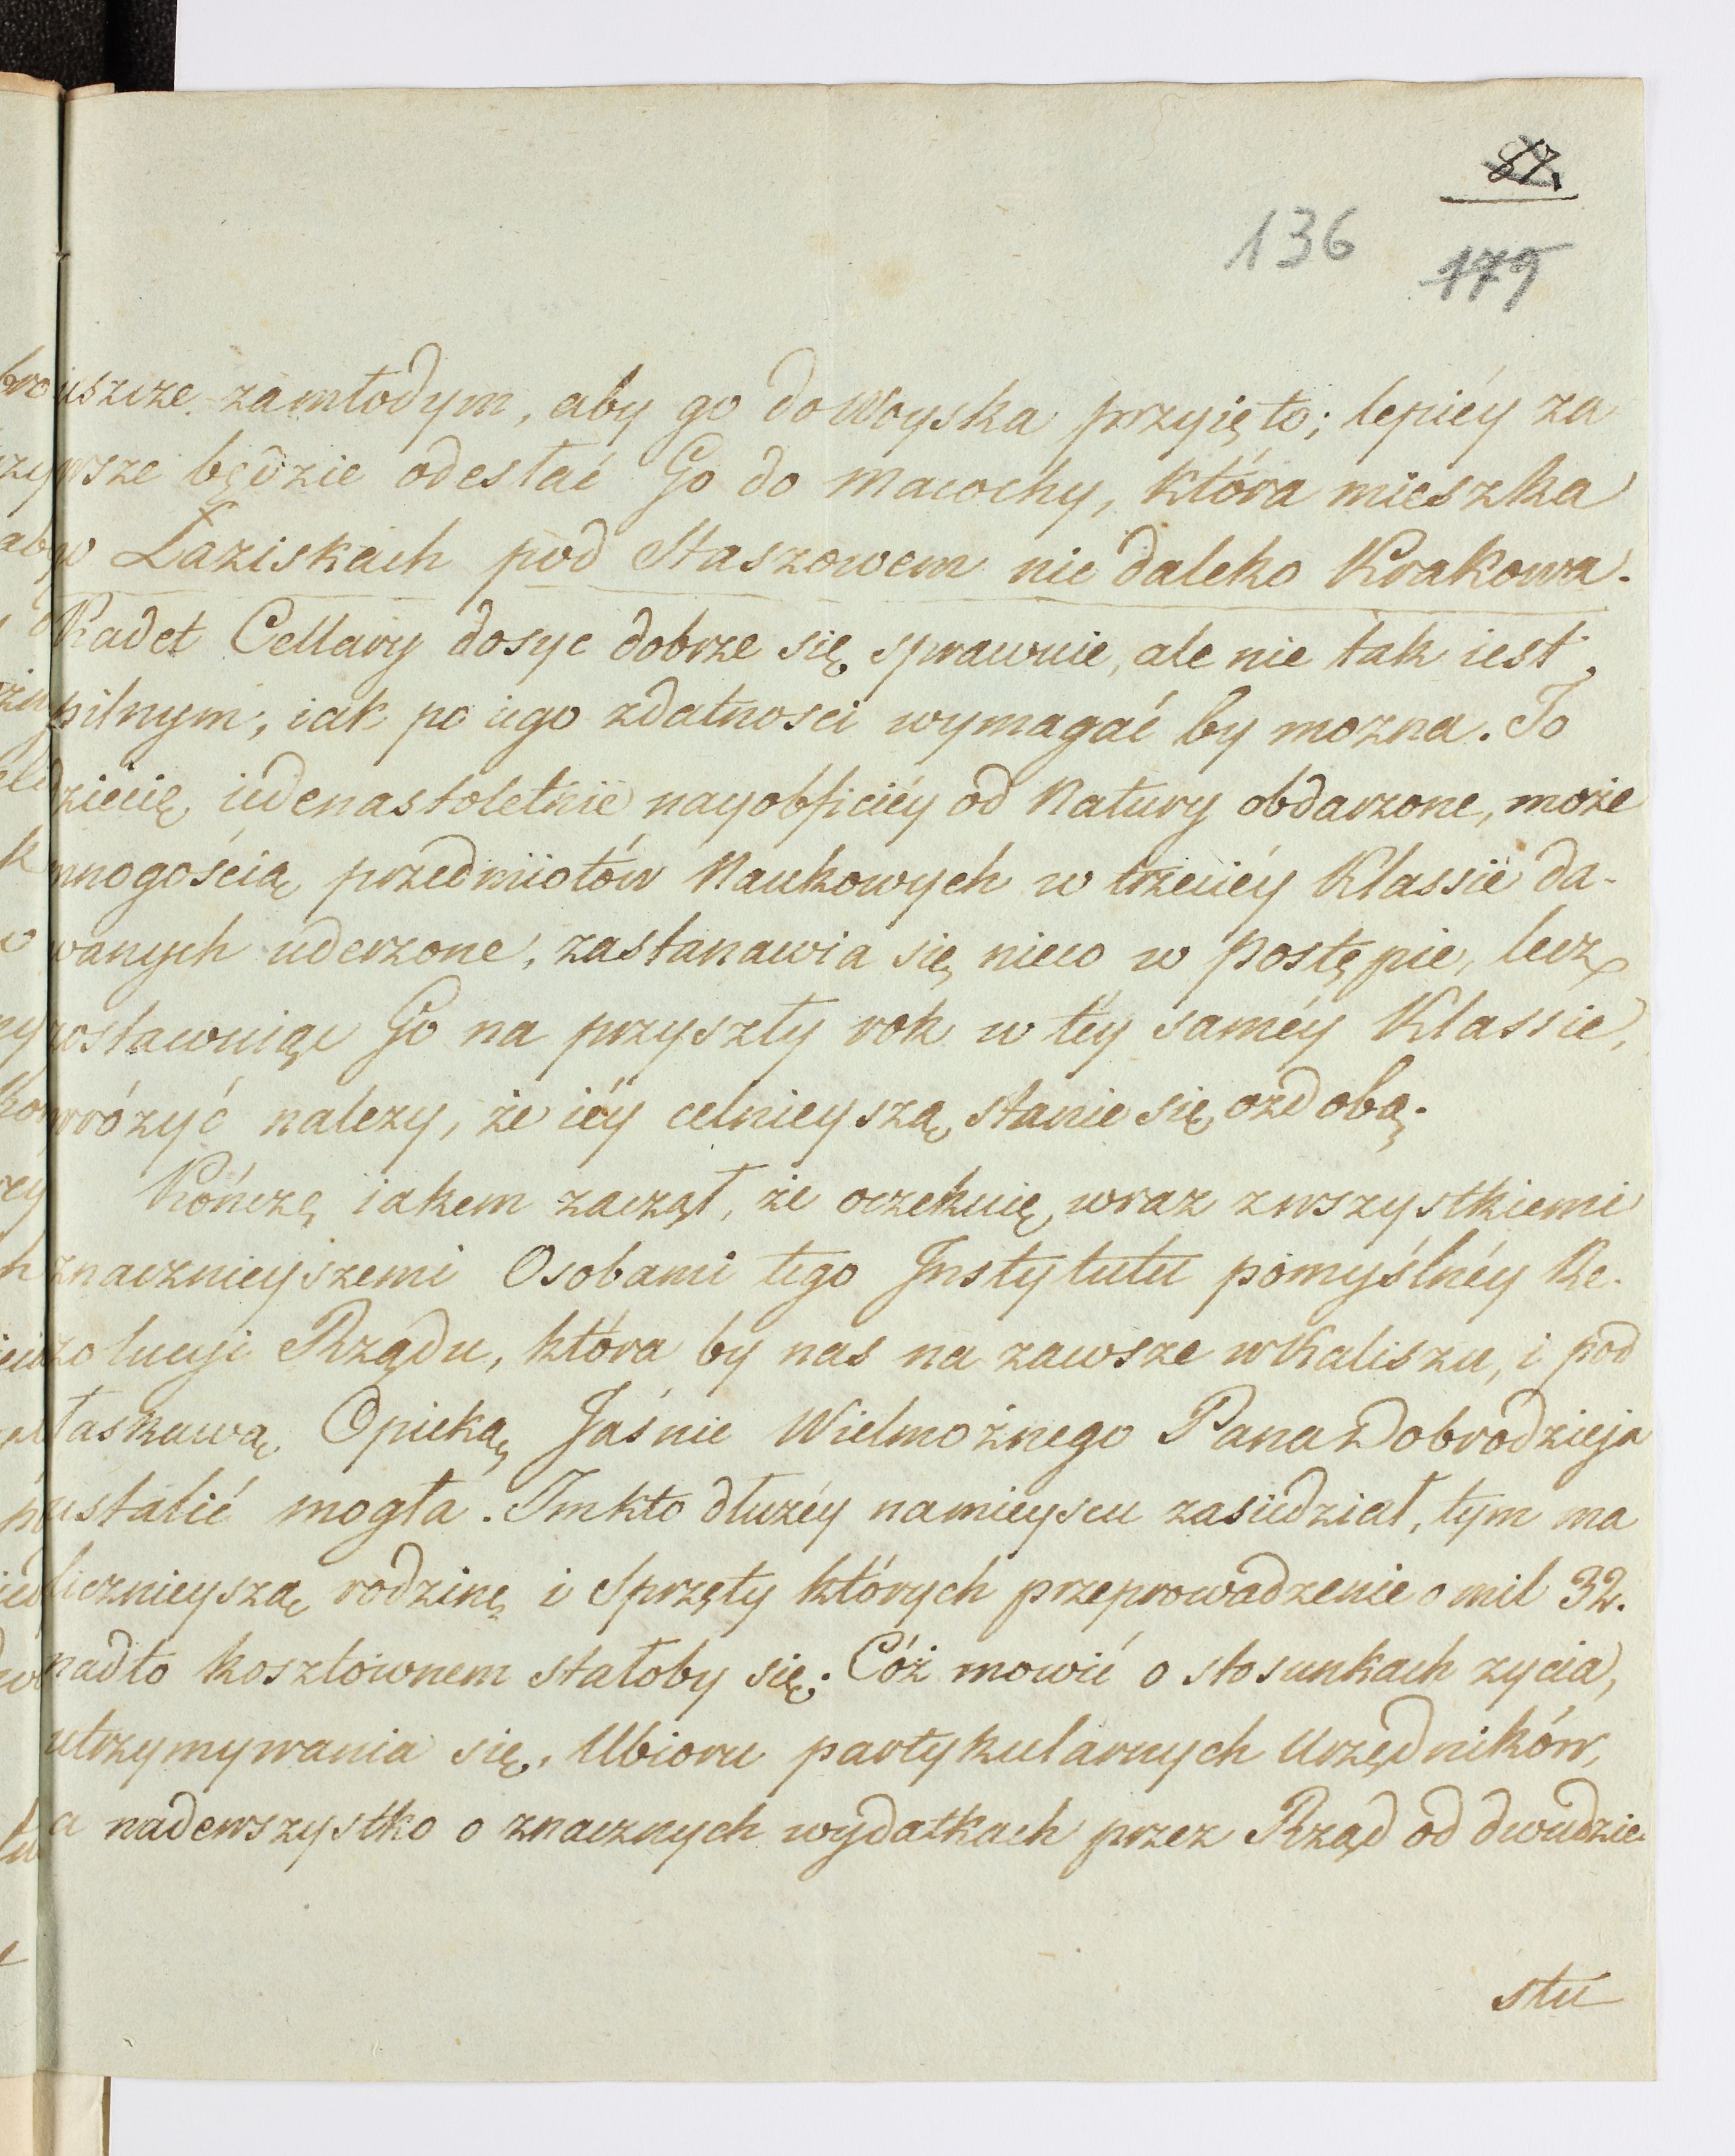 87.
136
179
ieszcze zamłodym, aby go do Woyska przyięto; lepiéy za
wsze będzie odesłać Go do Macochy, która mieszka
w Łaziskach pod Staszowem nie daleko Krakowa.
Kadet Cellary dosyc dobrze się sprawuie, ale nie tak iest
pilnym, iak po iego zdatnosci wymagać by mozna. To
dziecię iedenastoletnie nayobficiéy od Natury obdarzone, może
mnogością przedmiotów Naukowych w trzeciéy Klassie da-
wanych uderzone, zastanawia się nieco w postępie, lecz
zostawuiąc Go na przyszły rok w téy saméy Klassie,
wróżyć nalezy, że iéy celnieyszą stanie się ozdobą.
Kończę iakem zaczął, że oczekuię wraz zwszystkiemi
znacznieyszemi Osobami tego Instytutu pomyślnéy Re-
zolucyi Rządu, która by nas na zawsze wKaliszu, i pod
łaskawą Opieką Jaśnie Wielmożnego Pana Dobrodzieja
ustalić mogła. Imkto dłużéy namieyscu zasiedział, tym ma
licznieyszą rodzinę i Sprzęty których przeprowadzenie o mil 32.
nadto kosztownem stałoby się; Cóż mowić o stosunkach zycia,
utrzymywania się, Ubioru partykularnych Urzędników,
a nadewszystko o znacznych wydatkach przez Rząd od dwudzie-
stu